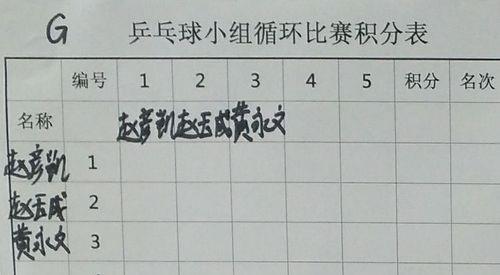 G 乒乓球小组循环比赛积分表
编号 1 2 3 4 5 积分 名次
名称 赵彦凯 赵玉成 黄永文
赵彦凯 1
赵玉成 2
黄永文 3